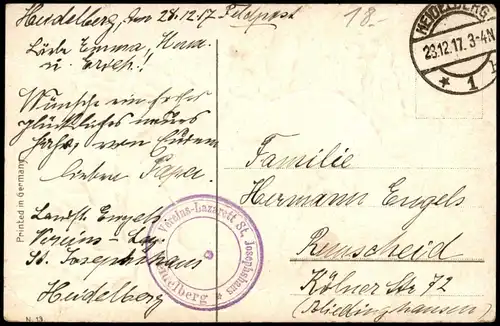 Heidelberg, den 28.12.17 Feldpost
18.-
Liebe Emma, Hans
u. Erich!
Wünsche ein frohes
glückliches neues
Jahr, von Eurem
lieben Papa.
Landst. Engels
Vereins-Laz.
St. Josephshaus
Heidelberg
Printed in Germany
N. 13
HEIDELBERG
28.12.17. 3-4 N
* 1
Vereins-Lazarett St. Josephshaus
Heidelberg *
Familie
Hermann Engels
Remscheid
Kölner Str 72
(Bliedinghausen)